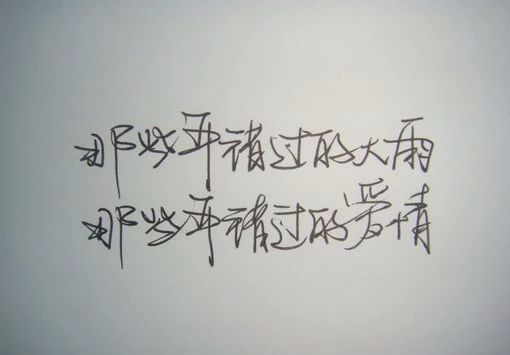 那些年错过的大雨
那些年错过的爱情